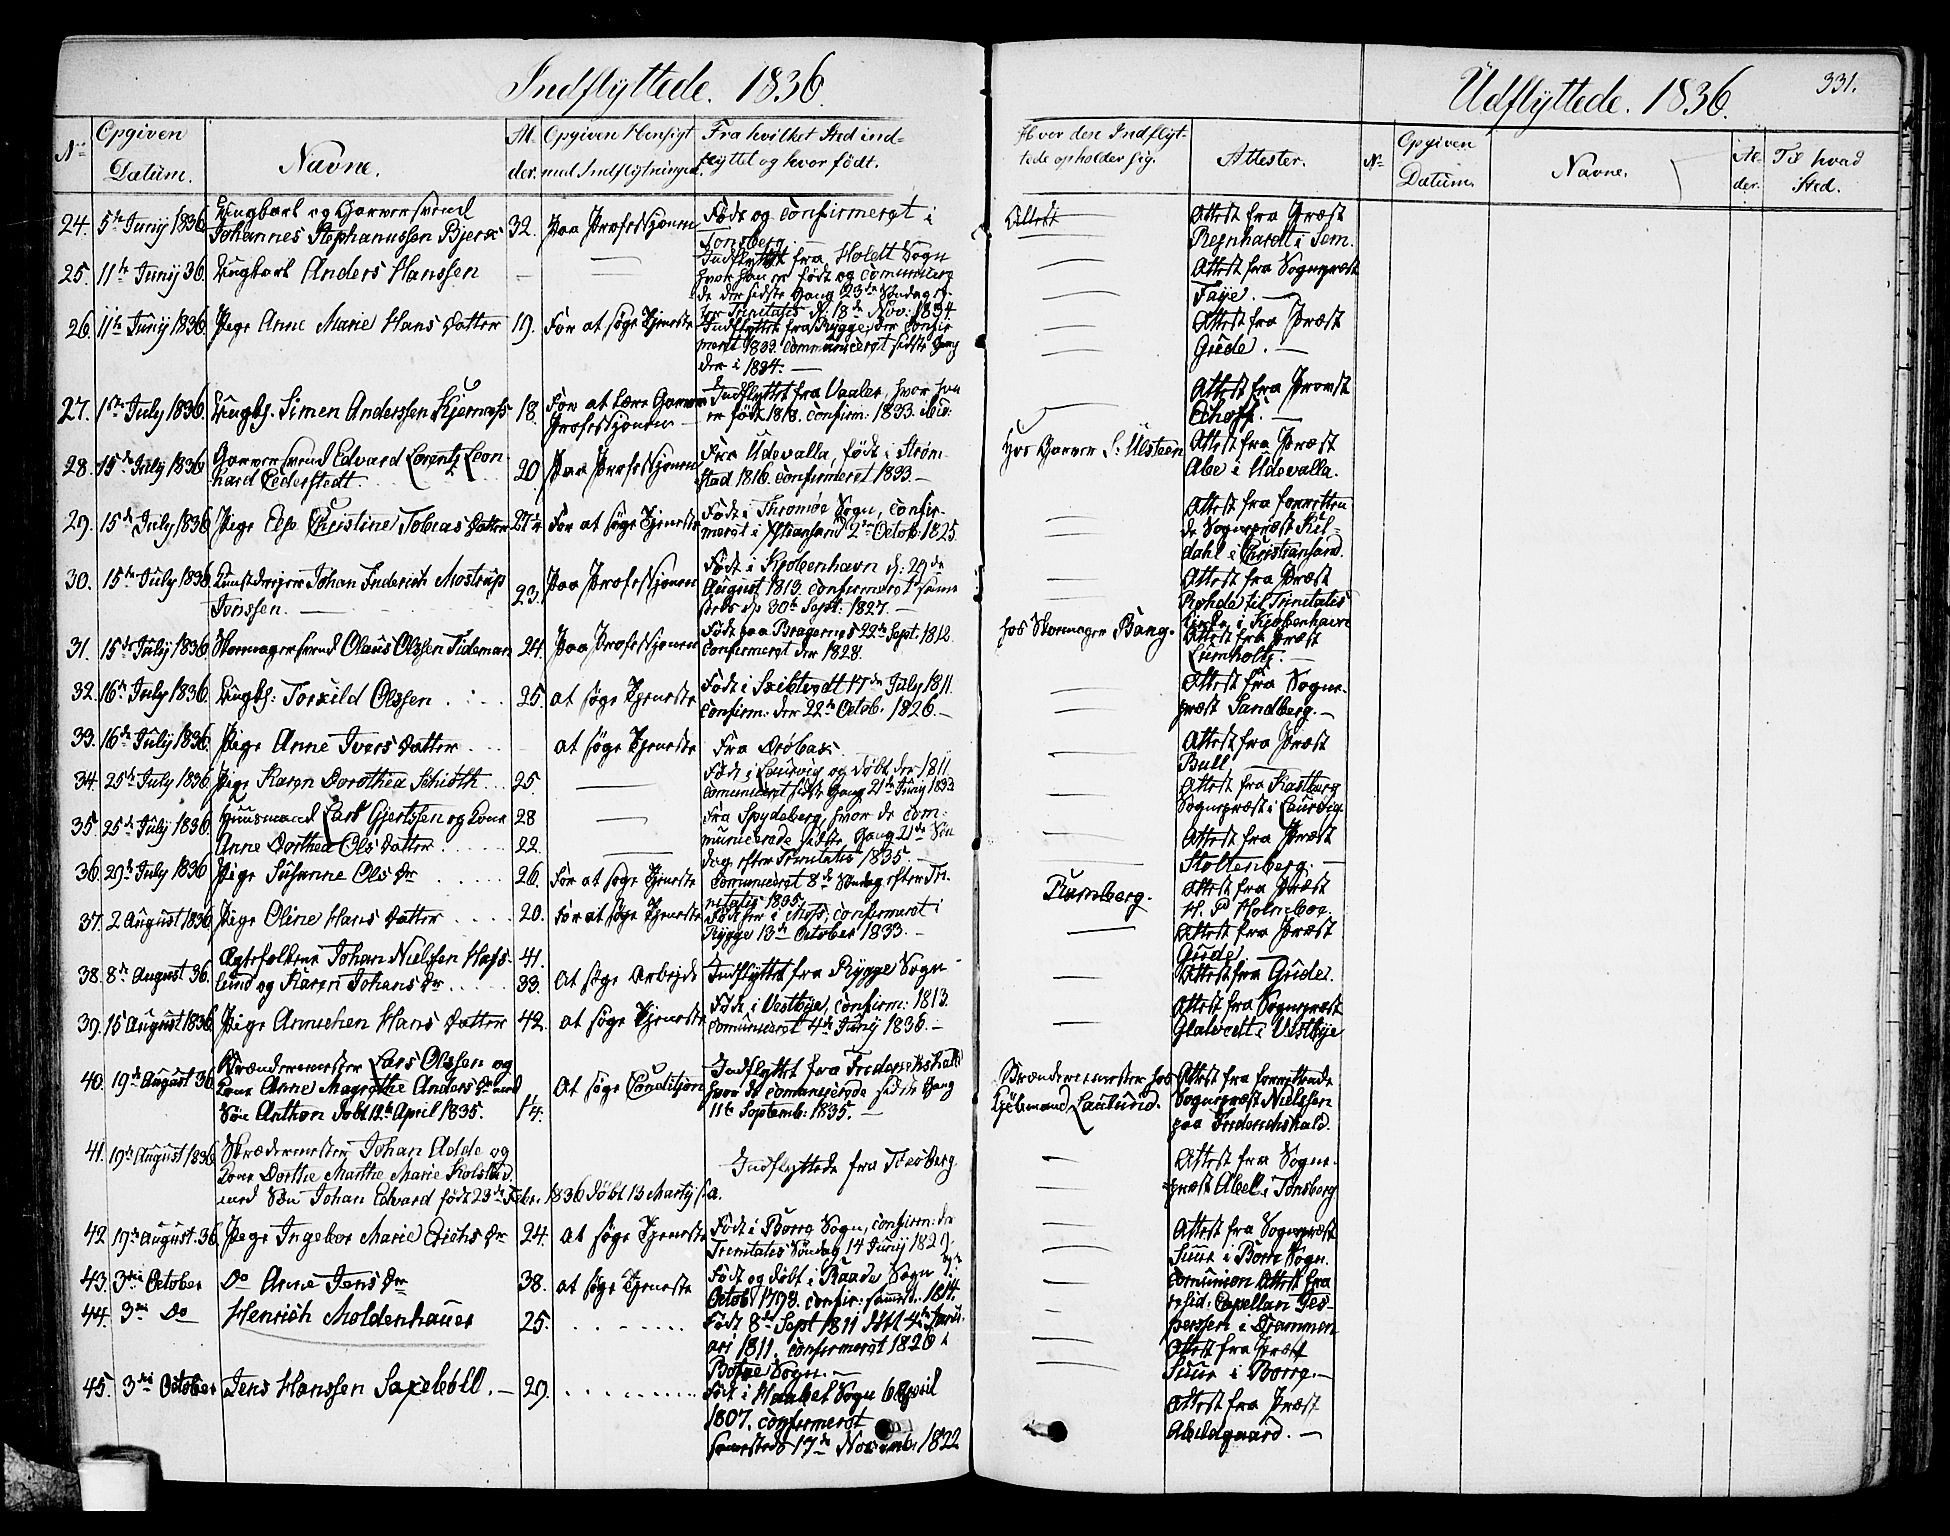 Indflyttede. 1836.
Udflyttede. 1836.
331.
No
Opgiven Datum.
Navne.
Alder.
Opgiven Hensigt med Indflytningen.
Fra hvilket Sted indflyttet og hvor født.
Hvor den Indflyttede opholder sig.
Attester.
No
Opgiven Datum.
Navne.
Alder.
Til hvad Sted.
24. 5te Junij 1836. Ungkarl og Garversvend
Johannes Stephanussen Bjerк 32. Paa Professjonen Født og confirmeret i
Tonsberg. Attest fra Præst
Rejnhardt i Sem.
25. 11te Junij 36. Ungkarl Anders Hanssen — — Indflyttet fra Holedt Sogn
hvor han er født og communicere
de der sidste Gang 23de Søndag ef-
ter Trinitatis d. 18de Nov: 1834. Attest fra Sognepræst
Faÿe. —
26. 11te Junij 1836. Pige Anne Marie Hans Datter 19. For at søge Tjeneste Indflyttet fra Rygge, der confir
meret 1832. communiceret sidste Gang
der i 1834. — Attest fra Præst
Gude. —
27. 1ste July 1836. Ungk. Simen Anderssen Kjernæss 18. For at lære Garver
Professjonen — Indflyttet fra Vaaler, hvor han
er født 1818. confirm: 1833. Attest fra Provst
Echoff. —
28. 15de July 1836 Garversvend Edvard Lorentz Leon
hard Cederstedt. 20. Paa Professjonen Fra Udevalla, født i Strøm-
stad 1816. confirmeret 1833. — Hos Garver S. Ulsteen Attest fra Præst
Abe i Udevalla.
29. 15de July 1836 Pige Else Christine Tobias Datter 27 For at søge Tjeneste Født i Thromøe Sogn, confir-
meret i Xstiansand 2den Octob: 1825. Attest fra forretten
de Sognepræst Kil-
dahl i Christiansand.
30. 15de July 1836. Kunstdrejer Johan Frederich Mostrup
Jonssen. — 23. Paa Professjonen Født i Kjøbenhavn d: 29de
August 1813. confirmeret samme
steds d. 30te Sept: 1827. — Attest fra Præst
Rohde til Trinitatis
Kirke i Kjøbenhavn
31. 15de July 1836. Skomagersvend Olaus Olssen Tideman 24. Paa Professjonen Født paa Bragernes 22de Sept: 1812.
Confirmeret der 1828. hos Skomager Bang. Attest fra Præst
Lumholtz. —
32. 16de July 1836. Ungk: Torkild Olssen. 25. at søge Tjeneste Født i Skibtvedt 17de July 1811.
confirm: der 22de Octob. 1826. — Attest fra Sogne-
præst Sandberg. —
33. 16de July 1836. Pige Anne Ivers Datter at søge Tjeneste Fra Drøbak. Attest fra Præst
Bull. —
34. 25de July 1836. Pige Karen Dorothea Schiøth 25. — Født i Laurvig og døbt der 1811
comuniceret sidste Gang 21de Junij 1833 Attest fra Kastberg
Sognepræst i Laurvig
35 25de July 1836. Huusmand Lars Gjertssen og Kone 28
Anne Dorthea Ols Datter 22. — Fra Spydeberg, hvor de com:
municerede sidste Gang 21de Søn
dag efter Trinitatis 1835. — Attest fra Præst
Stoltenberg. —
36. 29de July 1836 Pige Susanne Ols Dr 26. For at søge Tjeneste comuniceret 8de Søndag efter Tri-
nitatis 1835. Rumberg. Attest fra Præst
H. P. Holmboe.
37. 2 August 1836 Pige Oline Hans Datter 20. For at søge Tjeneste Født i Moss, confirmeret i
Rygge 13de October 1833. — Attest fra Præst
Gude.
38. 8de August 36. Ægtefolkene Johan Nielssen Hass- 41.
lund og Karen Johans Dr 33. at søge Arbejde Indflyttet fra Rygge Sogn Attest fra Gude.
39. 15 August 1836. Pige Annichen Hans Datter 42. at søge Tjeneste Født i Vestbye, confirm: 1813.
comuniceret 4de Junij 1836. — Attest fra Sognepræst
Glatvedt i Vestbye
40. 19de August 36 Lars Olssen og
Kone Anne Magrethe Anders Dr med
Søn Anthon født 12te April 1835. 1 1/4. at søge Condition Indflyttet fra Frederikshald
hvor de comunicerede sidste Gang
11te Septemb: 1835. — Attest fra forrettende
Sognepræst Nielssen
paa Frederichshald.
41. 19de August 1836 Skrædermester Johan Adde og
Kone Dorthe Marthe Marie Kolstad
med Søn Johan Edvard født 23de Febr. 1836 døbt 13 Martij s. a. Indflyttede fra Tønsberg. Attest fra Sogne-
præst Abell i Tønsberg
42 19de August. 36. Pige Ingebor Marie Erichs Dr 24. at søge Tjeneste Født i Borre Sogn, confirm: der
Trinitatis Søndag 14 Junij 1829. Attest fra Sognepræst
Suur i Borre Sogn.
43. 3die October Do Anne Jens Dr 38. at søge Tjeneste Født og døbt i Raade Sogn
Octob 1798. confir: sammest. 1814. Comunion Attest fra
resid: Capellan Jes-
perssen i Drammen
44. 3die Do Henrich Moldenhauer 25. Født 8de Sept 1811
1811. confirmeret 1826 i
Borre Sogn. — Attest fra Præst
Suur i Borre. —
45. 3die October Jens Hanssen Saxebøll. — 29. Født i Haabel Sogn 6 April
1807. confirmeret
sammesteds 17de Novemb. 1822 Attest fra Præst
Abildgaard. —